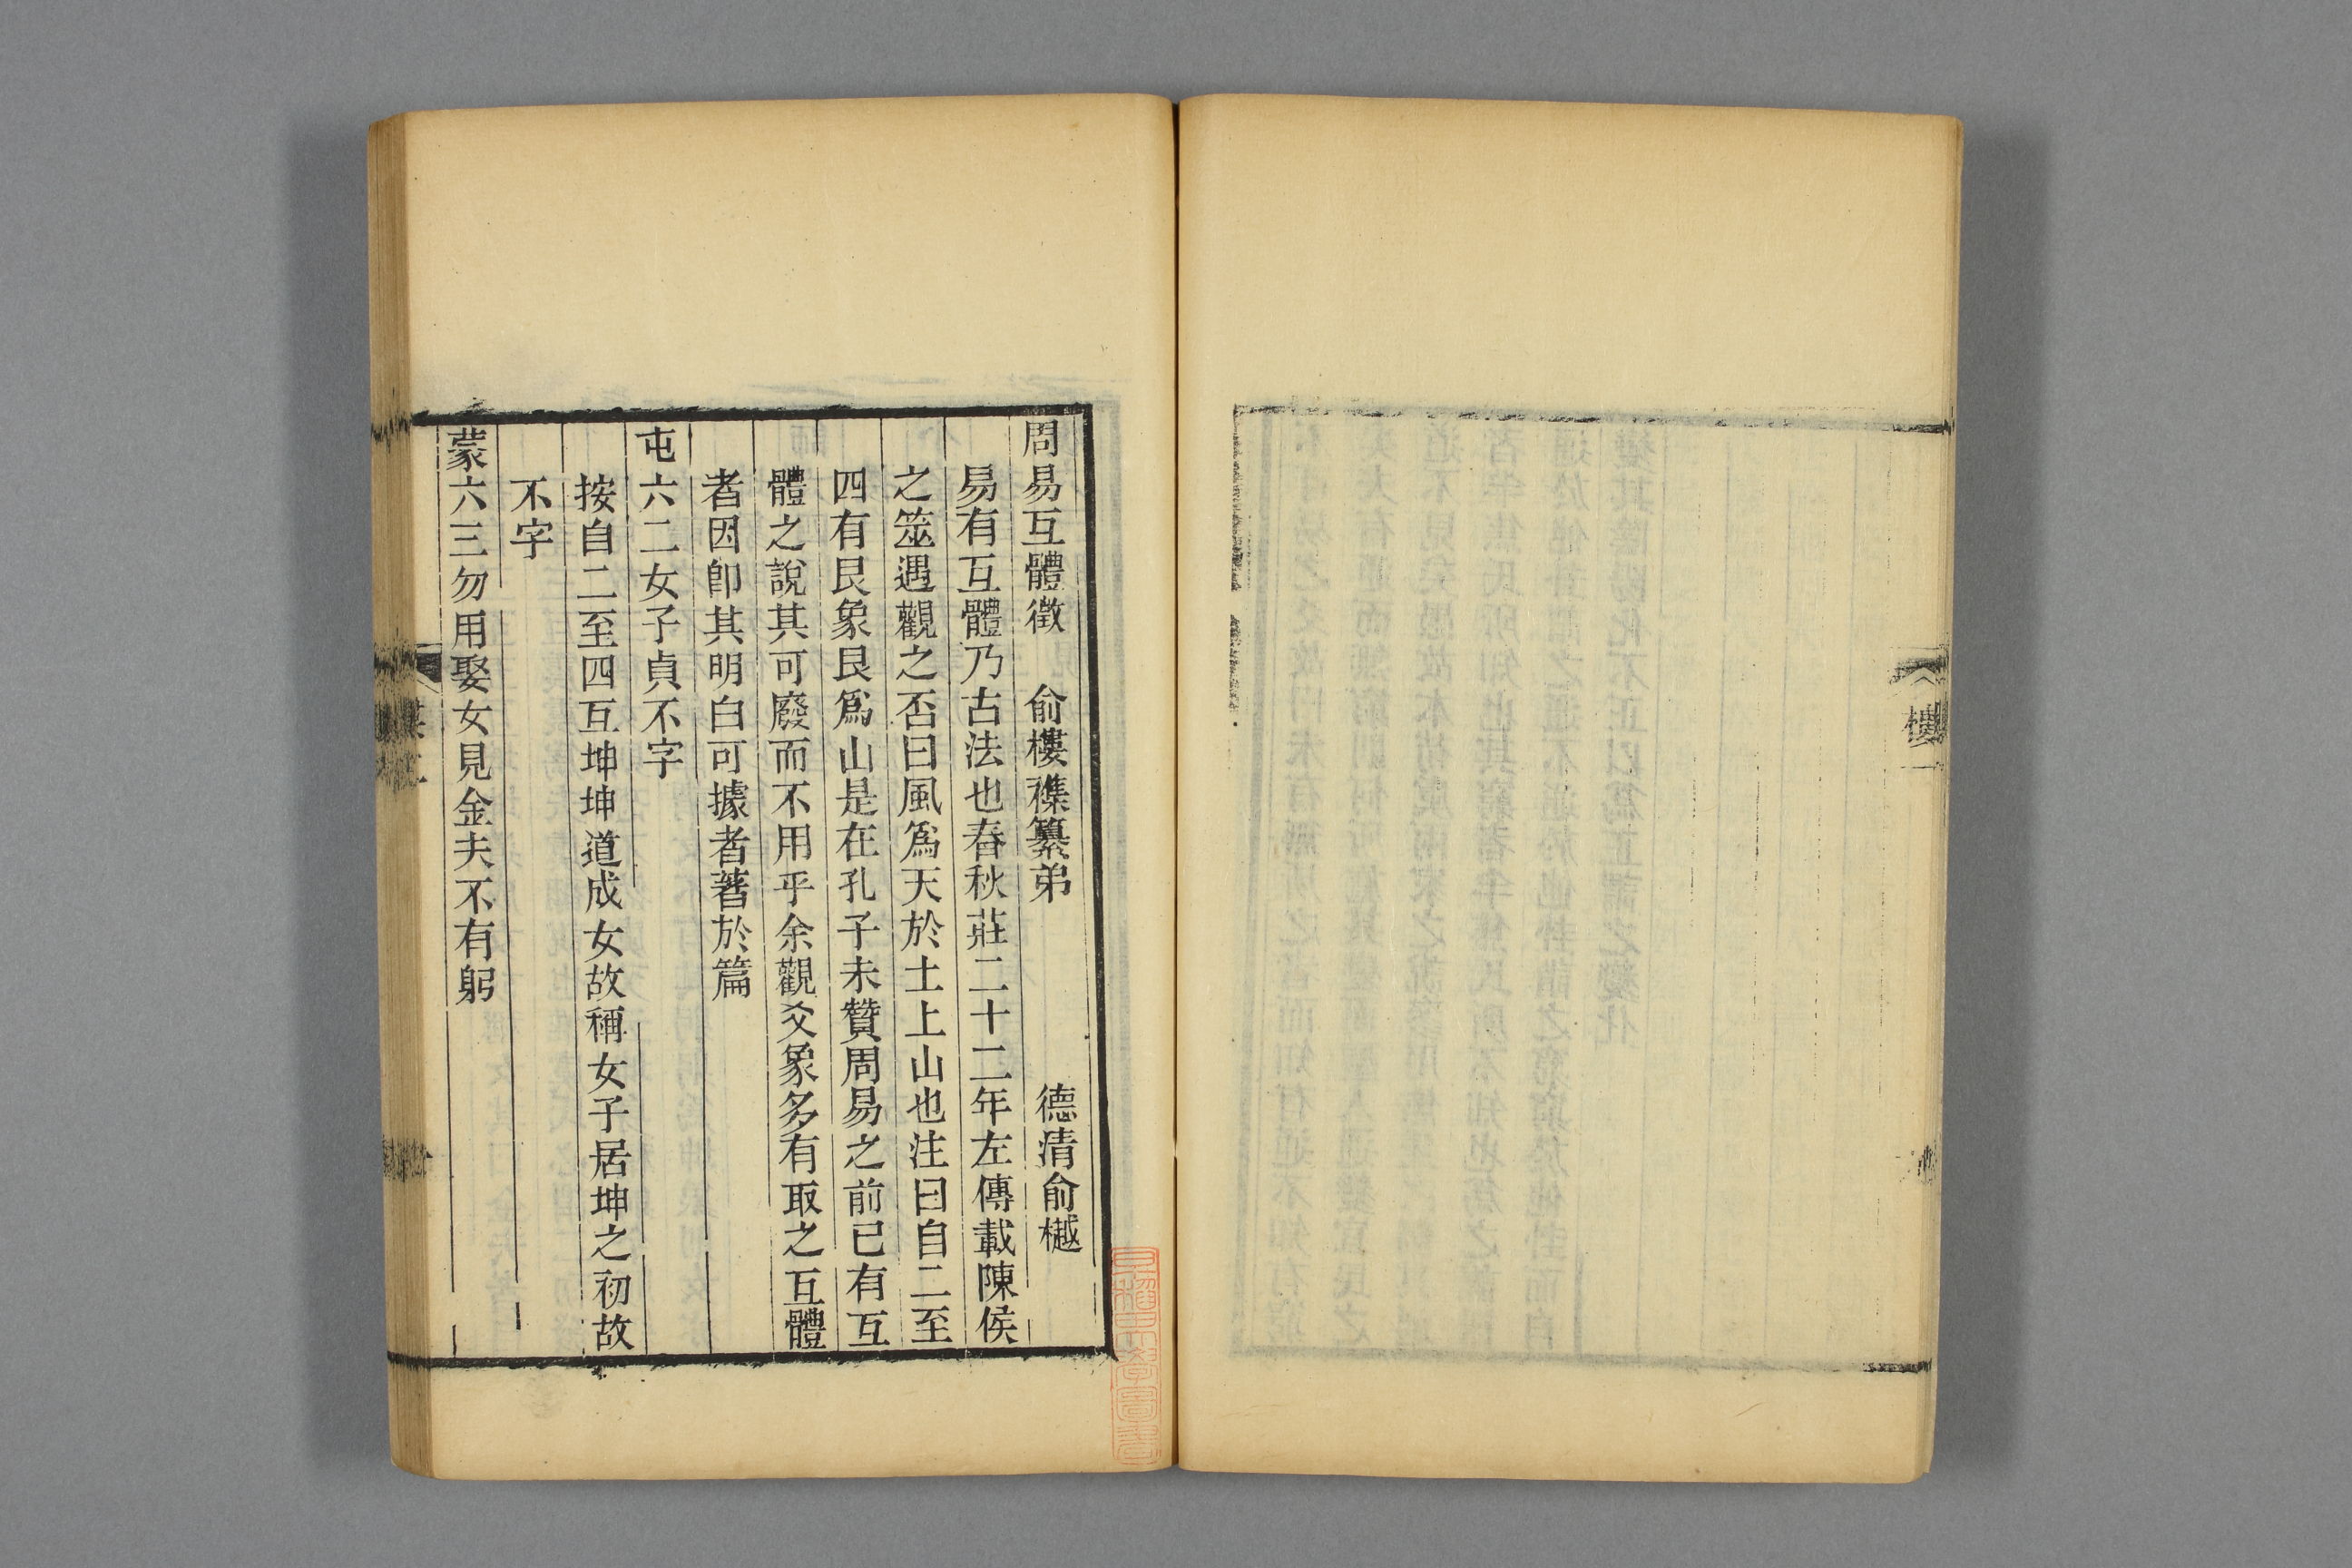 周易互體徵　俞樓襍纂弟　　　德清俞樾
易有互體乃古法也春秋莊二十二年左傳載陳侯
之筮遇觀之否曰風爲天於土上山也注曰自二至
四有艮象艮爲山是在孔子未贊周易之前已有互
體之說其可廢而不用乎余觀爻象多有取之互體
者因卽其明白可據者著於篇
屯六二女子貞不字
按自二至四互坤坤道成女故稱女子居坤之初故
不字
蒙六三勿用娶女見金夫不有躬